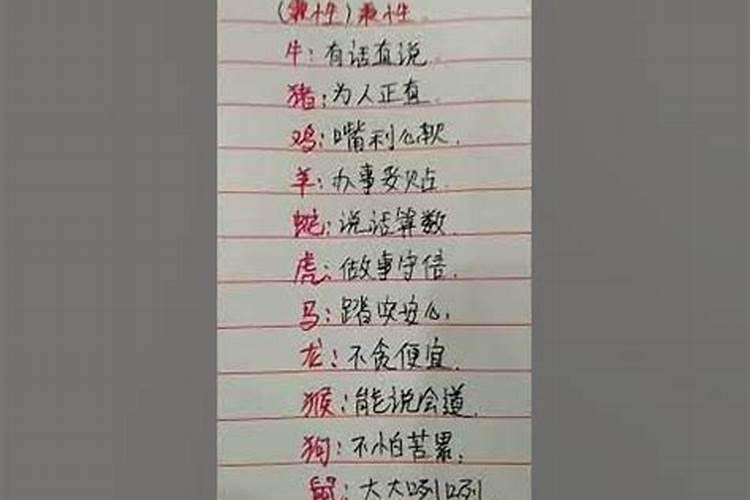 牛：有话直说。
猪：为人正直。
鸡：嘴利心软。
羊：办事妥贴。
蛇：说话算数
虎：做事守信。
马：踏实安心，
龙：不贪便宜.
猴：能说会道.
狗：不怕苦累.
鼠：大大咧咧